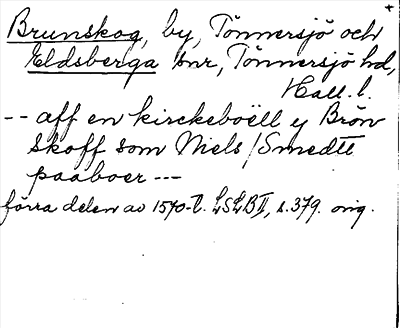 Brunskog, by, Tönnersjö och
Eldsberga snr, Tönnersjö hd,
Hall. l.
-- aff en kirckeboëll y Brön
skoff som Niels / Smedtt
paaboer ---
förra delen av 1570-t. LSLB II, s. 379. orig.